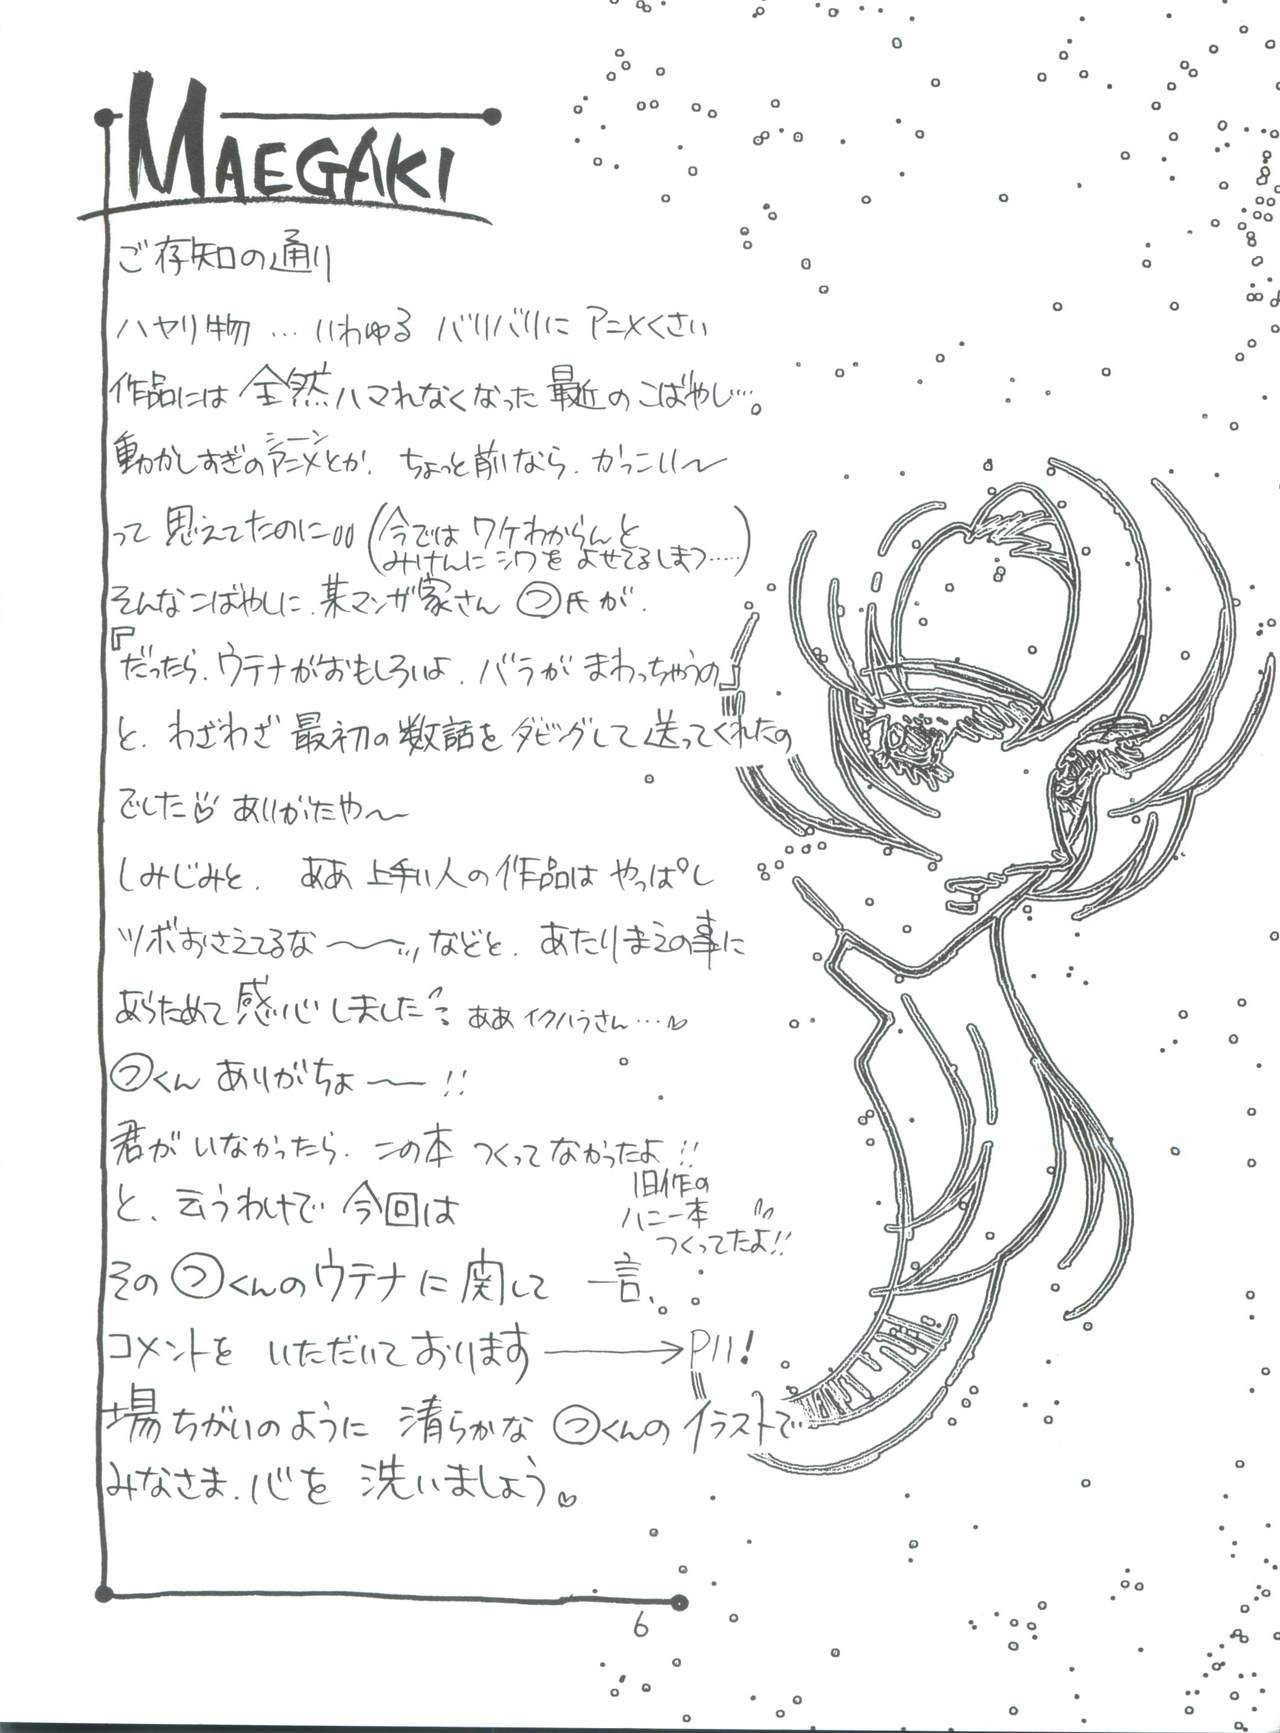 MAEGAKI
ご存知の通り
ハヤリ物…いわゆる バリバリに アニメくさい
作品には 全然ハマれなくなった 最近の こばやし…。
動かしすぎのアニメとか、ちょっと前なら、かっこい〜
シーン
って 思えてたのに
(今では ワケわからんと
みけんに シワを よせてるしまつ……)
そんなこばやしに、某マンガ家さん つ氏が、
『だったら、ウテナがおもしろいよ、バラが まわっちゃうの』
と、わざわざ 最初の数話を ダビングして 送ってくれたの
でした♡ ありがたや〜
しみじみと、ああ 上手い人の作品は やっぱし
ツボおさえてるな〜〜ッ などと、あたりまえの事に
あらためて 感心しました ああ イクハラさん…♡
つくん ありがちょ〜!!
君が いなかったら、この本 つくって なかったよ!!
旧作の
ハニー本
つくってたよ!!
と、云うわけで 今回は
その つくんのウテナに 関して 一言、
コメントを いただいております→P11!
場ちがいのように 清らかな つくんの イラストで
みなさま、心を 洗いましょう♡
6